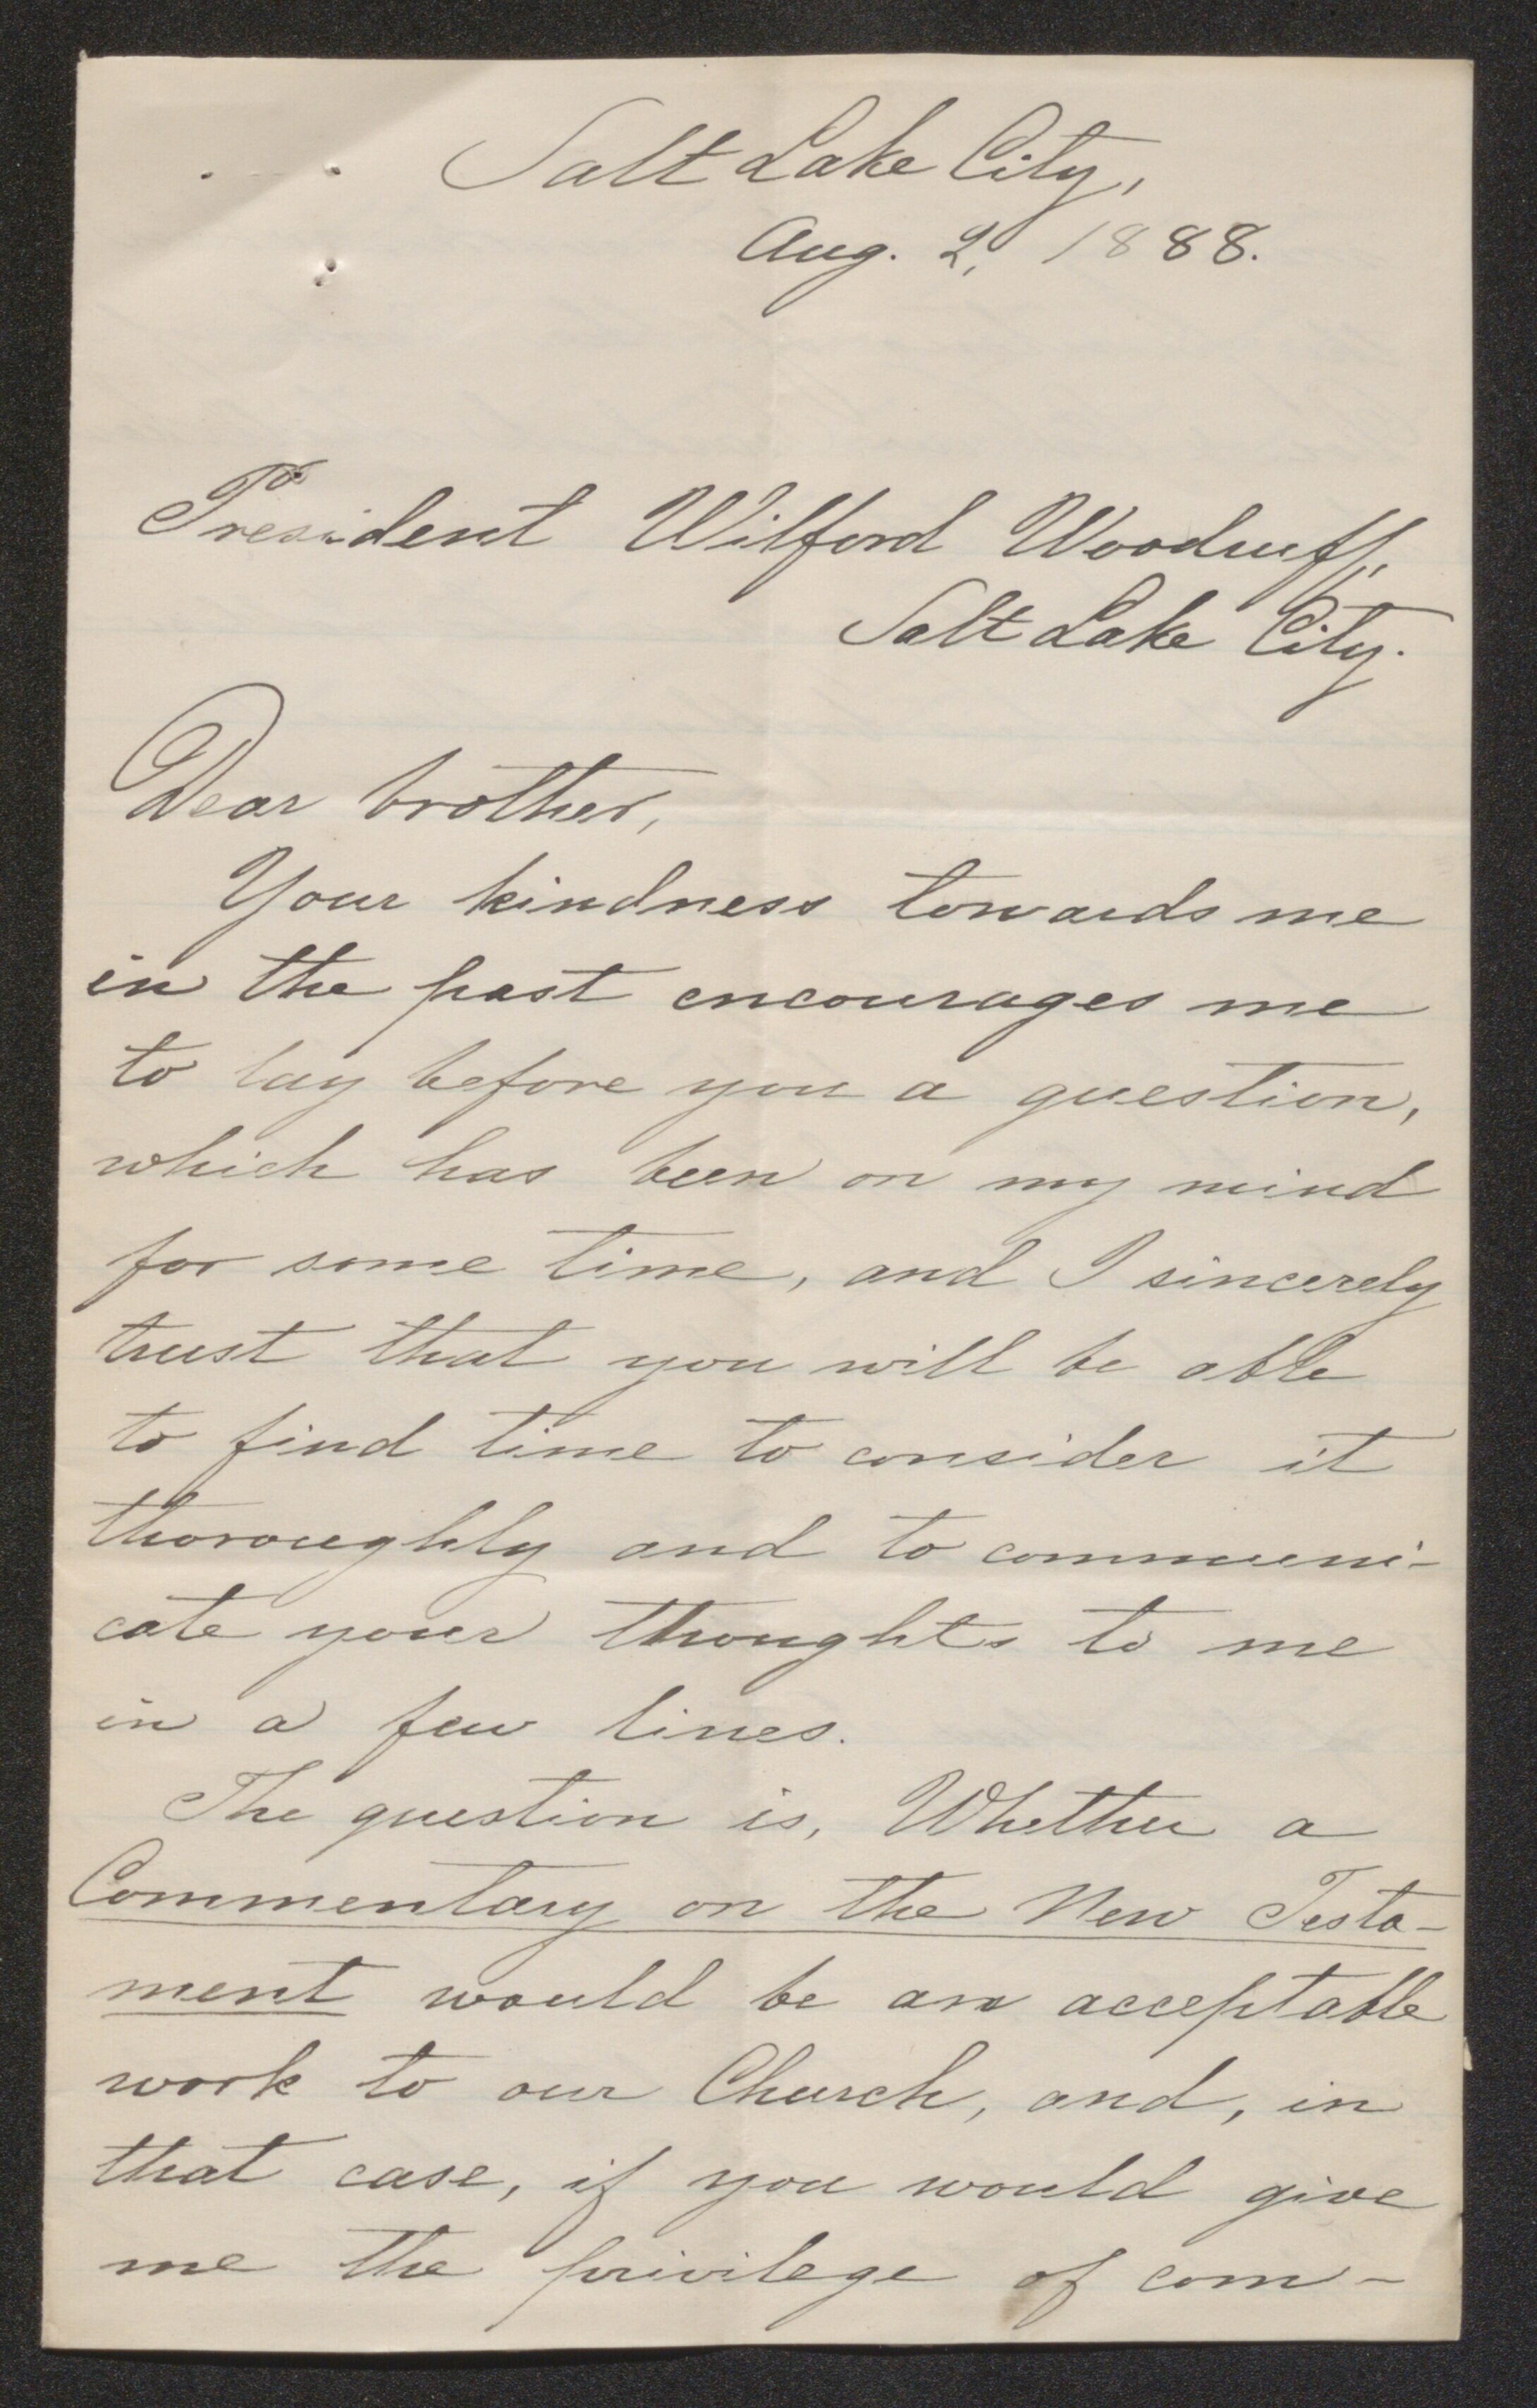 Salt Lake City,
Aug. 2, 1888.
President Wilford Woodruff,
Salt Lake City.
Dear brother,
Your kindness towards me
in the past encourages me
to lay before you a question,
which has been on my mind
for some time, and I sincerely
trust that you will be able
to find time to consider it
thoroughly and to communi-
cate your thoughts to me
in a few lines.
The question is, Whether a
Commentary on the New Testa-
ment would be an acceptable
work to our Church, and, in
that case, if you would give
me the privilege of com-